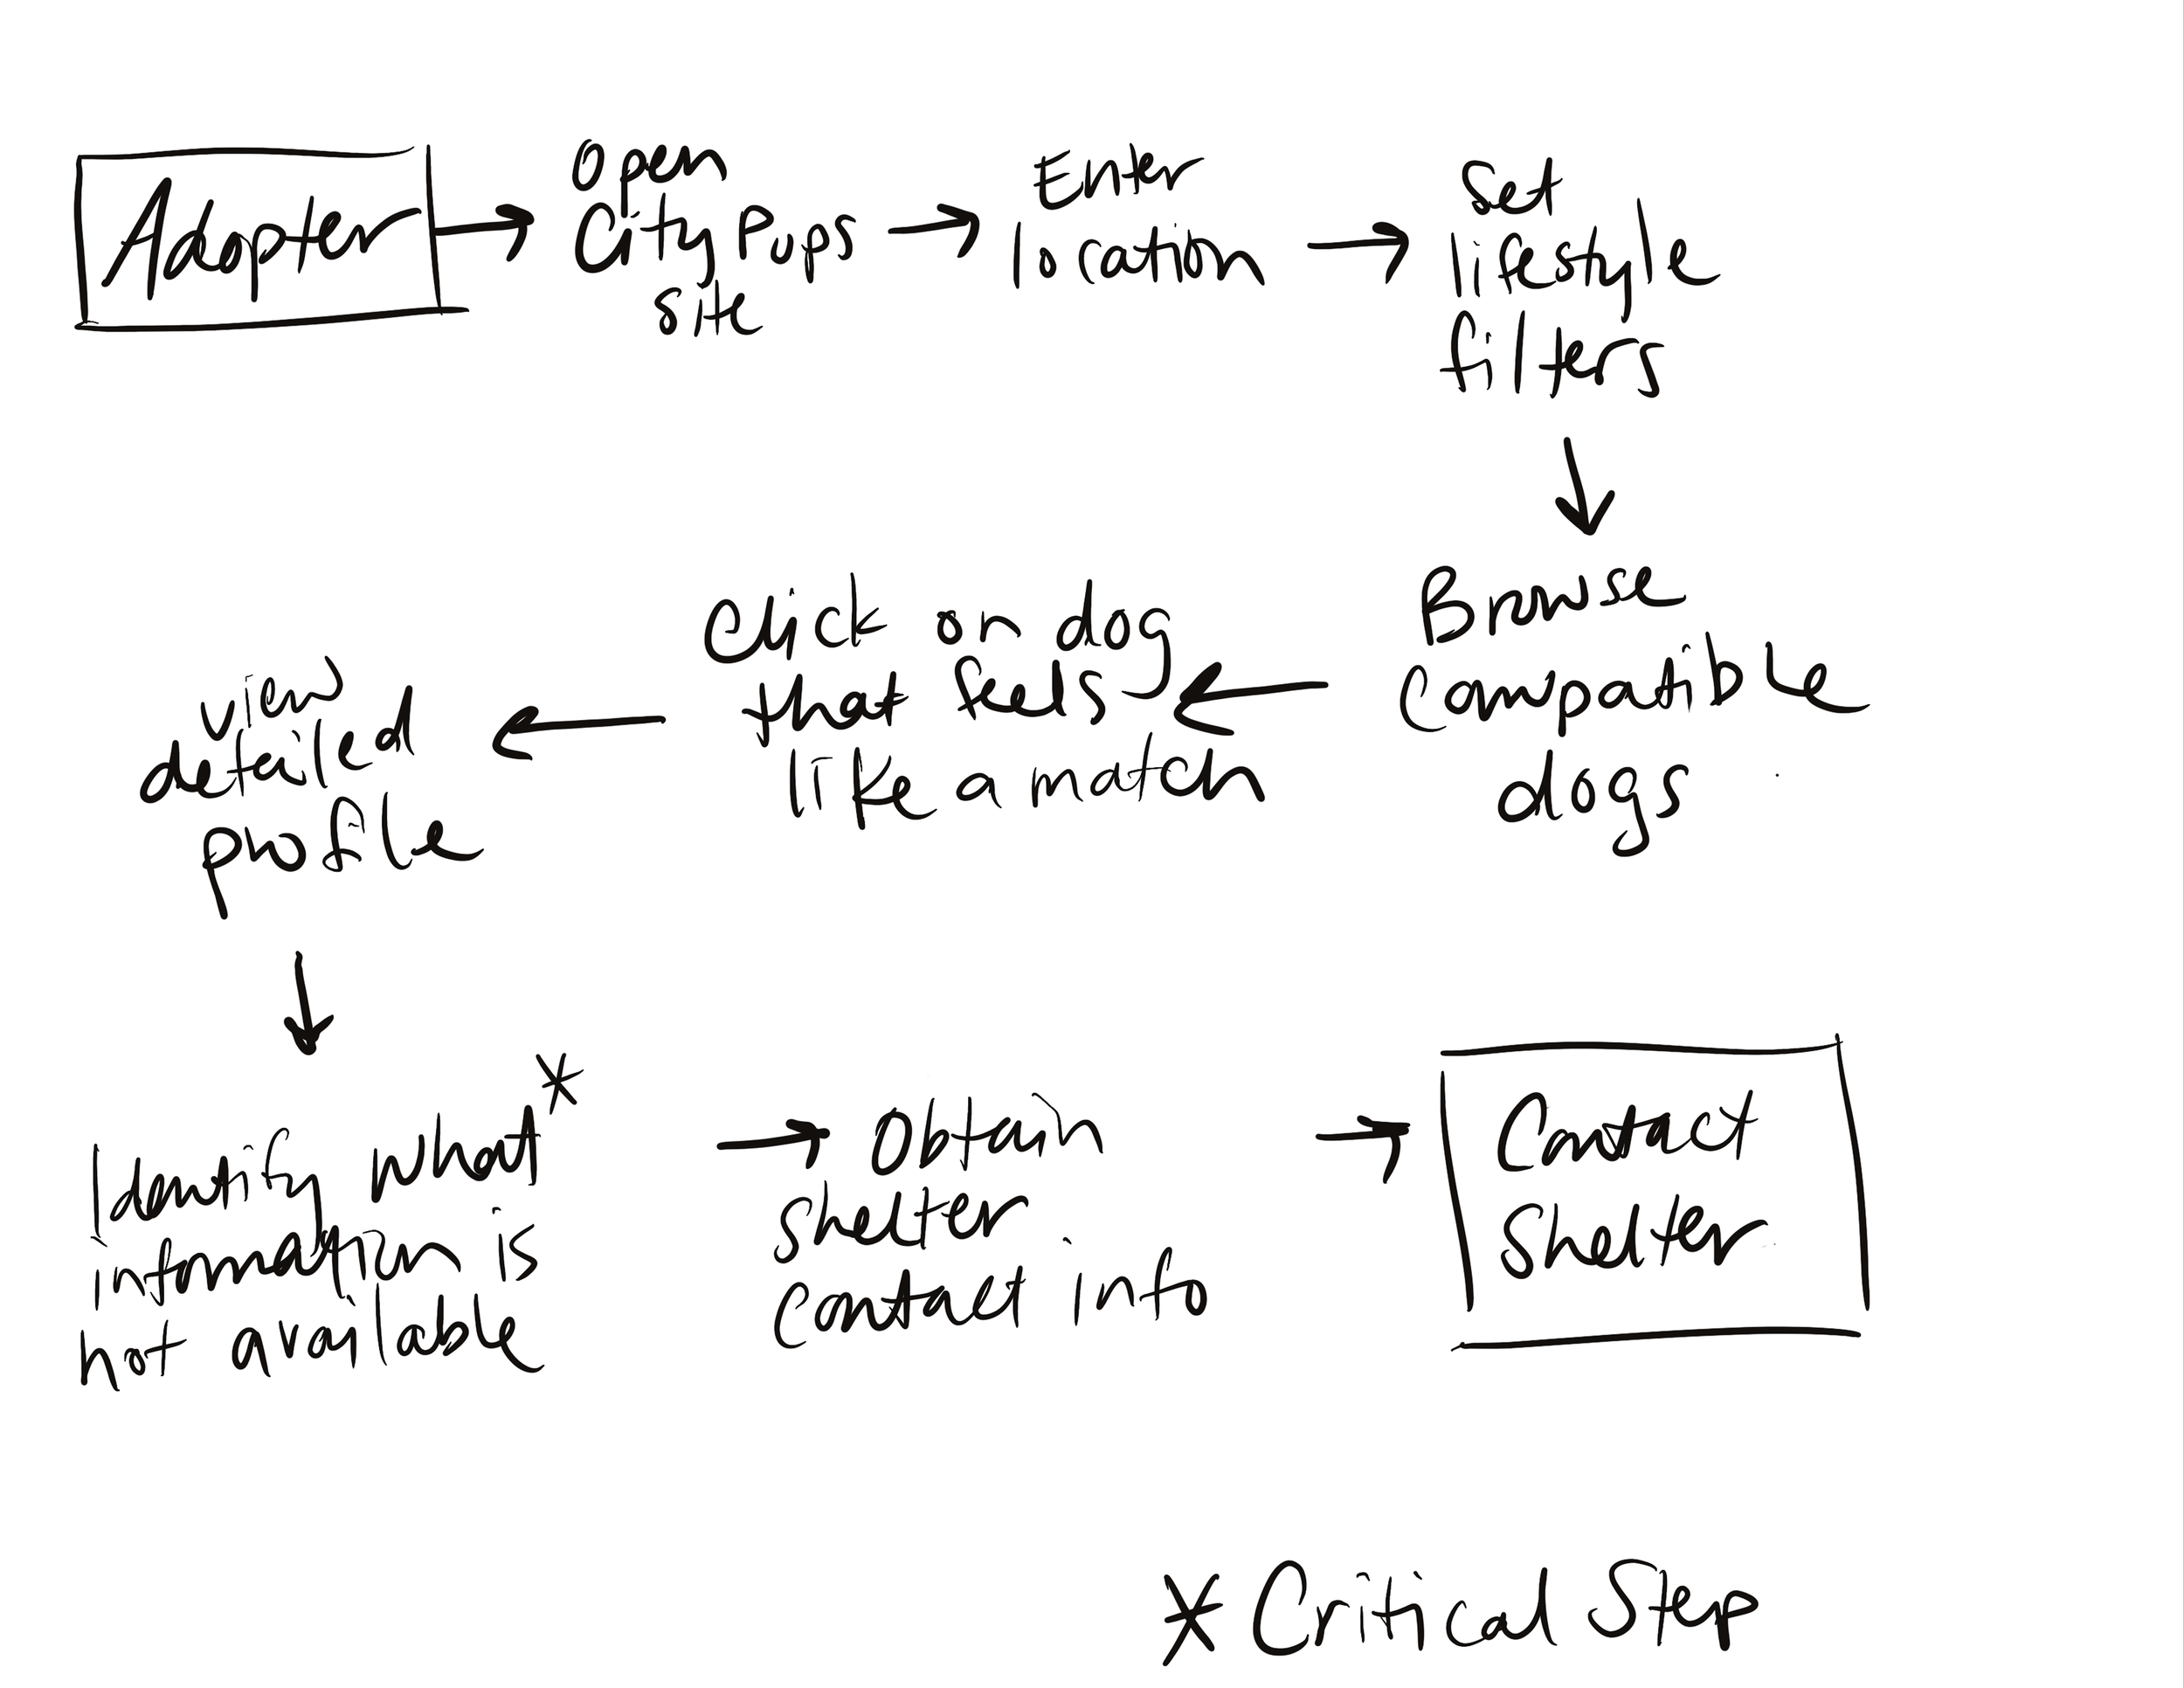 Adopter
Open
City Pups
site
Enter
location
Set
lifestyle
filters
Browse
Compatible
dogs
Click on dog
that feels
like a match
view
detailed
profile
Identify what*
information is
not available
Obtain
Shelter
Contact info
Contact
Shelter
* Critical Step